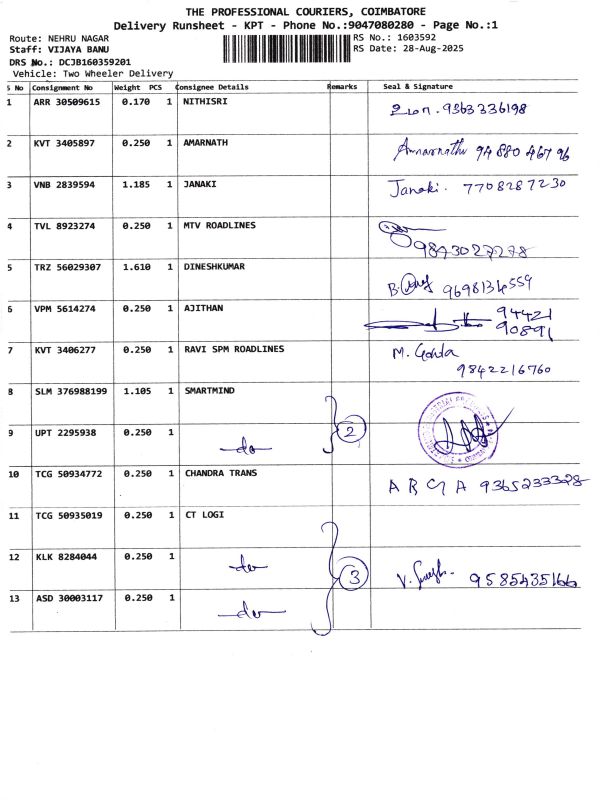 THE PROFESSIONAL COURIERS, COIMBATORE
Delivery Runsheet - KPT - Phone No.:9047080280 - Page No.:1
Route: NEHRU NAGAR RS No.: 1603592
Staff: VIJAYA BANU RS Date: 28-Aug-2025
DRS No.: DCJB160359201
Vehicle: Two Wheeler Delivery
S No Consignment No Weight PCS Consignee Details Remarks Seal & Signature
1 ARR 30509615 0.170 1 NITHISRI 9363336198
2 KVT 3405897 0.250 1 AMARNATH Amarnath 94880 46796
3 VNB 2839594 1.185 1 JANAKI Janaki. 7708287230
4 TVL 8923274 0.250 1 MTV ROADLINES 9873027278
5 TRZ 56029307 1.610 1 DINESHKUMAR 9698136559
6 VPM 5614274 0.250 1 AJITHAN 94421
90891
7 KVT 3406277 0.250 1 RAVI SPM ROADLINES M.
9842216760
8 SLM 376988199 1.105 1 SMARTMIND
9 UPT 2295938 0.250 1 do 2
10 TCG 50934772 0.250 1 CHANDRA TRANS 9365233328
11 TCG 50935019 0.250 1 CT LOGI
12 KLK 8284044 0.250 1 do 3 V. 9585435166
13 ASD 30003117 0.250 1 do